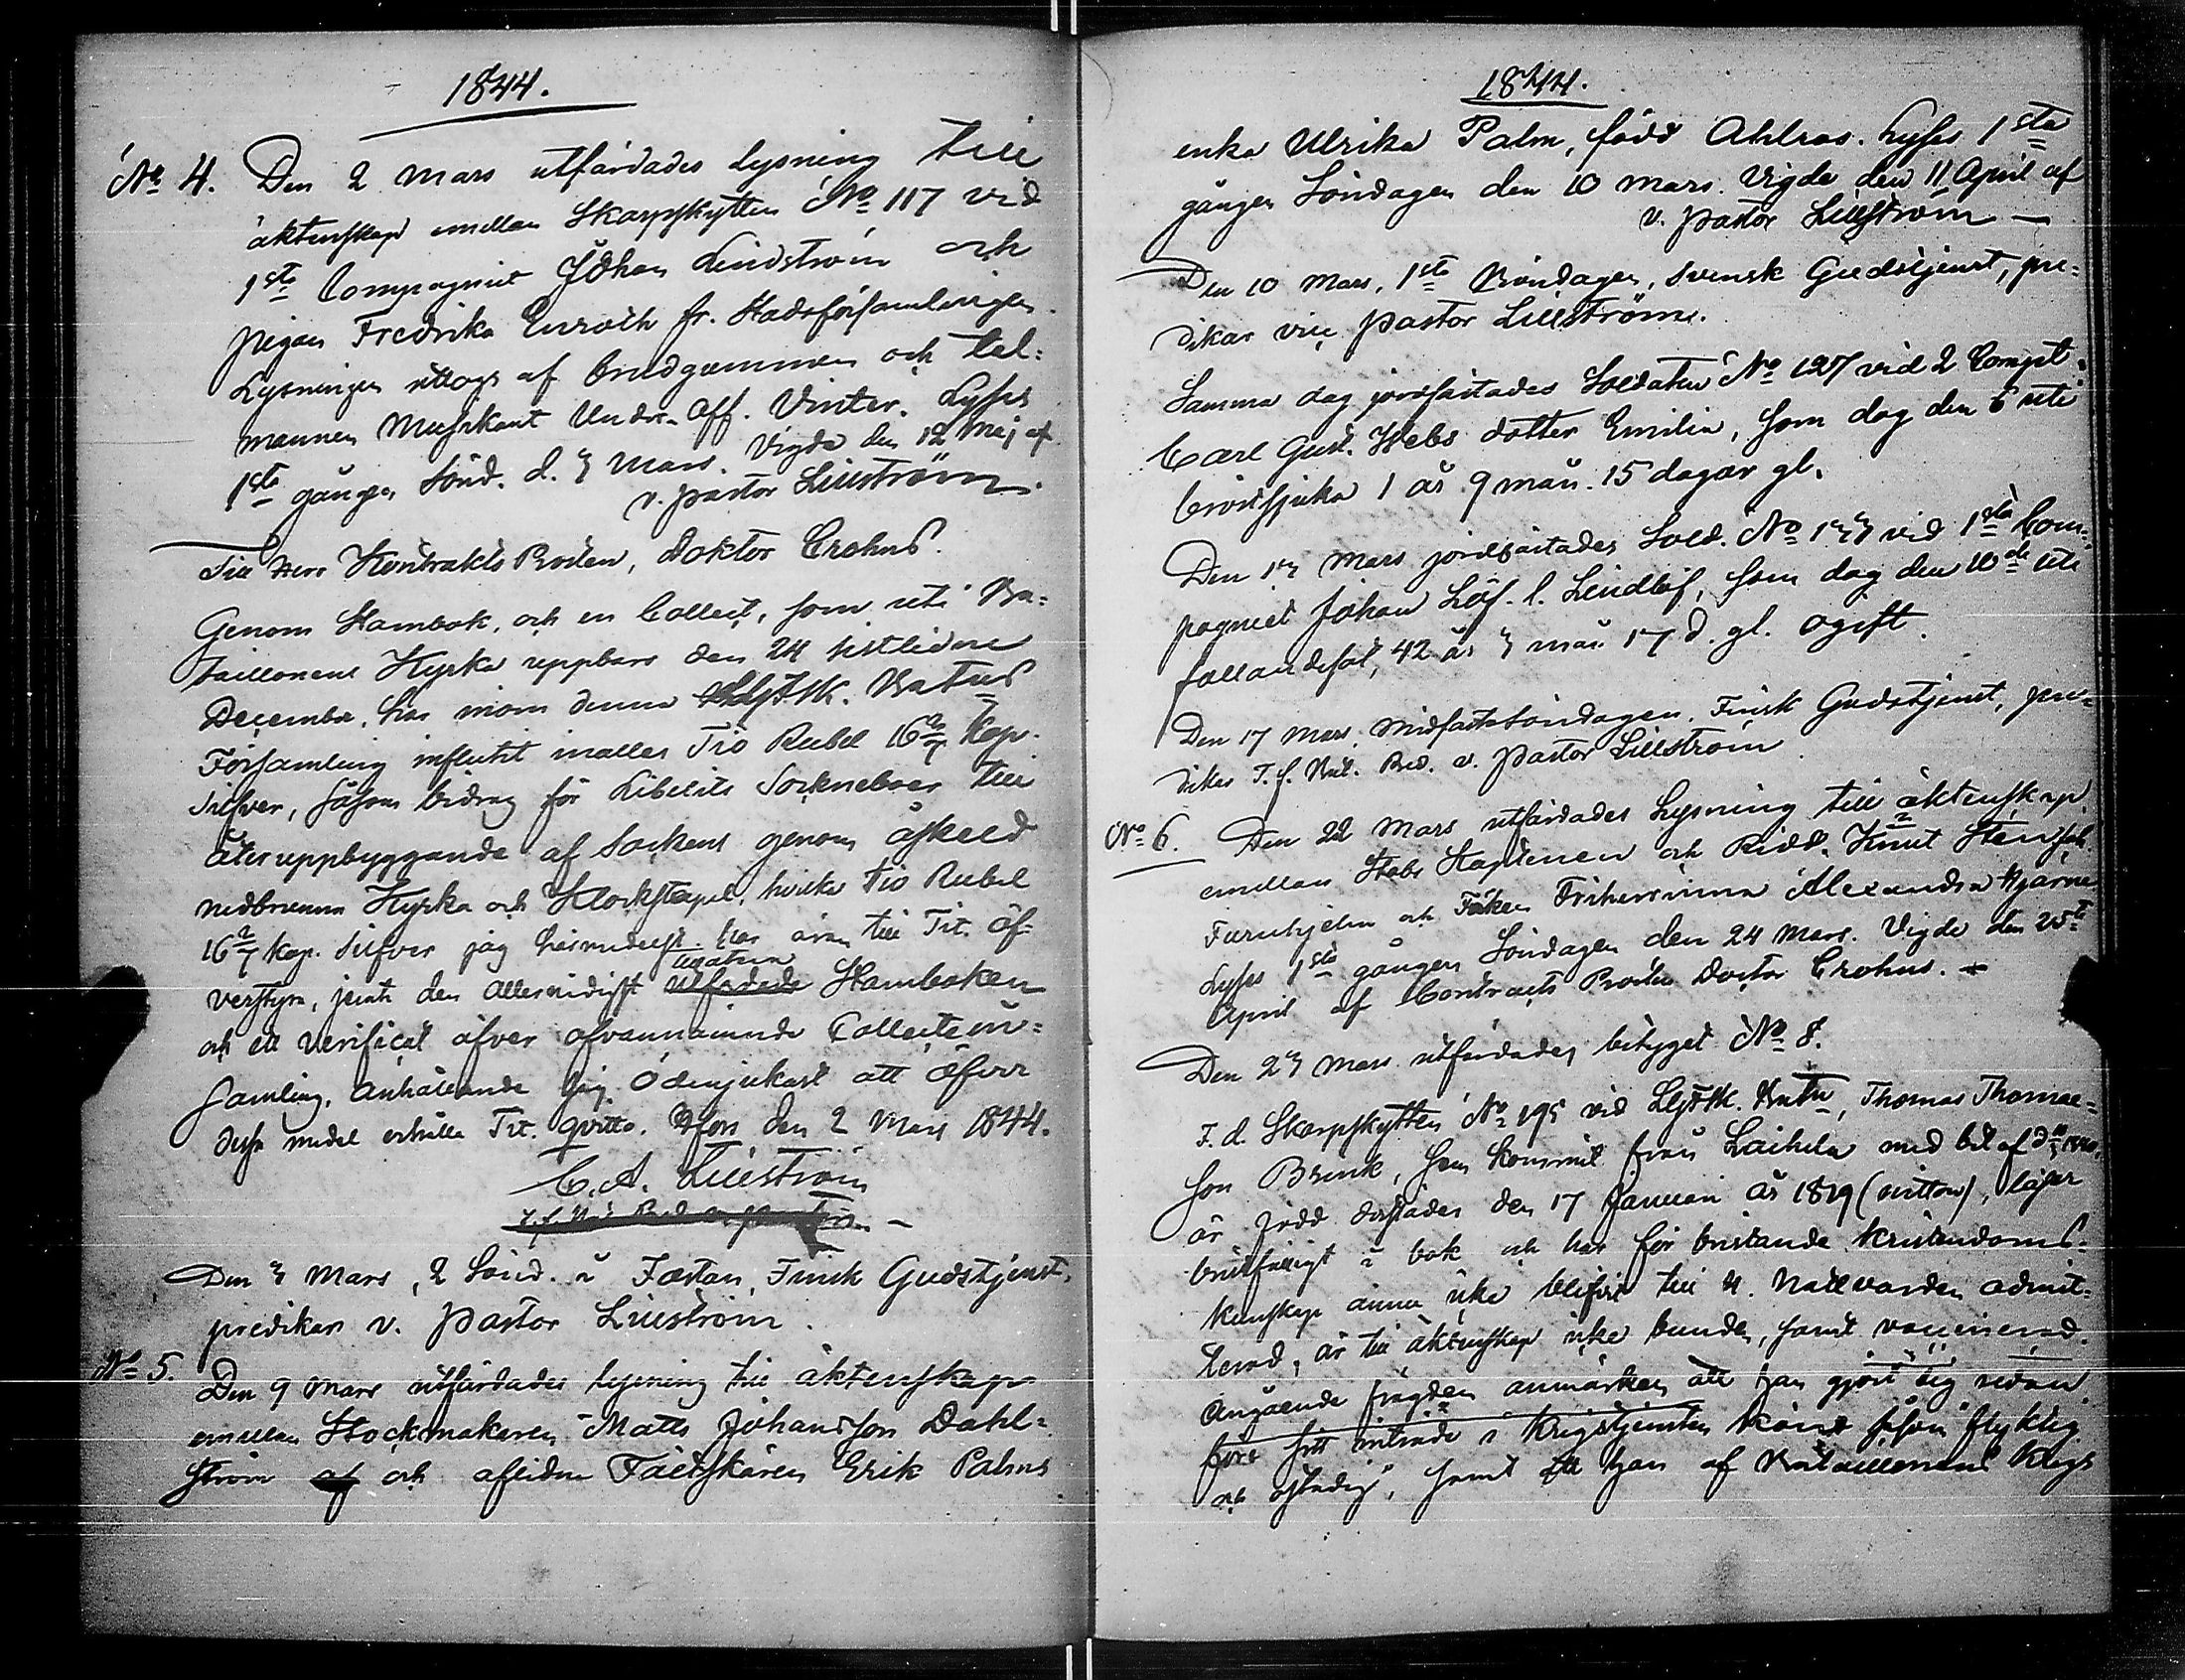 1844.
No 4. Den 2 Mars utfärdades Lysning till
äktenskap emellan Skarpskytten No 117 vid
1sta Compagniet Johan Lindström och
pigan Fredrika Enroth fr. Stadsförsamlingen.
Lysningen uttogs af brudgummen och tal-
mannen Musikant Under-Off. Vinter. Lystes
1sta gången Sönd. d. 3 Mars. Vigde den 12 Maj af
v. pastor Lillström.
Till Herr Kontrakts Prosten, Doktor Crohns.
Genom Stambok, och en Collect, som uti Ba-
taillonens Kyrka uppbars den 24 sistlidne
December, har inom denna Batns
Församling influtit inalles Tio Rubel 16 2/7 kop.
Silfver, såsom bidrag för Libelits Sockneboer till
återuppbyggande af Sockens genom åskeld
nedbrunna Kyrka och Klockstapel, hvilka tio Rubel
16 2/7 kop. Silfver jag härmedelst har äran till Tit. öf-
versyra, jemte den allernådigst utfärdade Stamboken
och ett verificat öfver ofvannämnde Collects in-
samling, anhållande jag ödmjukast att öfver
dessa medel erhålla Tit. qvitto. den 2 Mars 1844.
C. A. Lillström
Den 3 Mars, 2 Sönd. i Fastan, Finsk Gudstjenst,
predikar v. Pastor Lillström.
No 5. Den 9 Mars utfärdades lysning till äktenskap
emellan Stockmakaren Matts Johansson Dahl-
ström af och aflidne Fältskären Erik Palms
1844.
enka Ulrika Palm, född Ahlros. Lystes 1sta
gången Söndagen den 10 Mars. Vigde den 11 April af
v. pastor Lillström —
Den 10 Mars, 1sta Böndagen, Svensk Gudstjenst, pre-
dikar vice pastor Lillström.
Samma dag jordfästades Soldaten No 127 vid 2 Compt.
Carl Gust. Webs dotter Emilia, som dog den 6 uti
bröstsjuka 1 år 9 mån. 15 dagar gl.
Den 13 Mars jordfästades Sold. No 133 vid 1sta Com-
pagniet Johan Löf. l. Lindlöf, som dog den 10de uti
fallandesot, 42 år 3 mån 17 d. gl. ogift.
Den 17 Mars, Midfastosöndagen. Finsk Gudstjenst, pre-
dikar T. f. Bat. Pred. v. Pastor Lillström.
No 6. Den 22 Mars utfärdades Lysning till äktenskap
emellan Stabs Kaptenen och Ridd. Knut
Furuhjelm och Fröken Friherrinna Alexandra Hjärne
Lystes 1sta gången Söndagen den 24 Mars. Vigde den 25te
April af Contracts Prosten Doctor Crohns.
Den 23 Mars utfärdades betyget No 8.
F. d. Skarpskytten No 195 vid Batn, Thomas Thomae-
son Brink, som kommit från Laihela med bet. af
är född den 17 Januari år 1819 (nitton), läser
bristfälligt i bok och har för bristande kristendoms-
kunskap ännu icke blifvit till H. Nattvarden admit-
terad, är till äktenskap icke bunden, samt vaccinerad.
Angående frägden anmärkes att han gjort sig redan
före sitt inträde i Krigstjensten känd såsom "flyktig
och ostadig", samt att han af Bataillonens Krigs